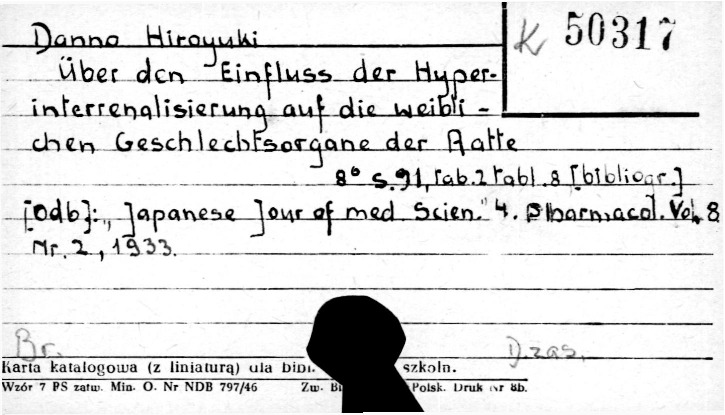 Danno Hiroyuki
K 50317
Über den Einfluss der Hyper-
interrenalisierung auf die weibli-
chen Geschlechtsorgane der Ratte
8° s. 91, tab. 2 tabl. 8 [bibliogr.]
[Odb]: „Japanese Jour of med Scien." 4. Pharmacol. Vol. 8
Nr. 2, 1933.
Br. D.zas.
Karta katalogowa (z liniaturą) dla bibl. szkoln.
Wzór 7 PS zatw. Min. O. Nr NDB 797/46 Zw. Polsk. Druk Nr 8b.